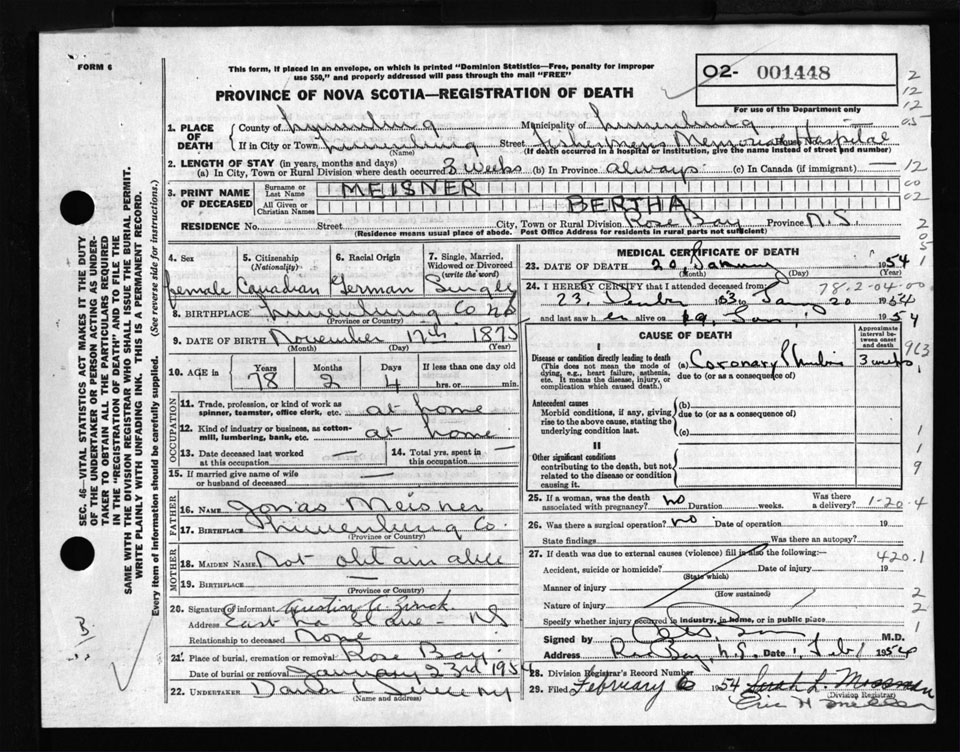 FORM 6
This form, if placed in an envelope, on which is printed "Dominion Statistics—Free, penalty for improper
use $50," and properly addressed will pass through the mail "FREE"
O2- 001448
For use of the Department only
PROVINCE OF NOVA SCOTIA—REGISTRATION OF DEATH
1. PLACE OF DEATH
County of Lunenburg Municipality of Lunenburg
If in City or Town Lunenburg Street Fishermens Memorial Hospital House No.
(Name) (If death occurred in a hospital or institution, give the name instead of street and number)
2. LENGTH OF STAY (in years, months and days)
(a) In City, Town or Rural Division where death occurred 3 weeks (b) In Province always (c) In Canada (if immigrant)
3. PRINT NAME OF DECEASED
Surname or Last Name MEISNER
All Given or Christian Names BERTHA
RESIDENCE No. Street City, Town or Rural Division Rose Bay Province N.S.
(Residence means usual place of abode. Post Office Address for residents in rural parts not sufficient)
4. Sex 5. Citizenship (Nationality) 6. Racial Origin 7. Single, Married, Widowed or Divorced (write the word)
Female Canadian German Single
8. BIRTHPLACE Lunenburg Co NS
(Province or Country)
9. DATE OF BIRTH November 17th 1875
(Month) (Day) (Year)
10. AGE in Years Months Days If less than one day old
78 2 4 hrs. or min.
OCCUPATION
11. Trade, profession, or kind of work as
spinner, teamster, office clerk, etc. at home
12. Kind of industry or business, as cotton-
mill, lumbering, bank, etc. at home
13. Date deceased last worked
at this occupation
14. Total yrs. spent in
this occupation
15. If married give name of wife
or husband of deceased
FATHER
16. NAME Jonas Meisner
17. BIRTHPLACE Lunenburg Co.
(Province or Country)
MOTHER
18. MAIDEN NAME Not obtainable
19. BIRTHPLACE
(Province or Country)
20. Signature of informant Austin A. Zinck
Address East La Have - NS
Relationship to deceased None
21. Place of burial, cremation or removal Rose Bay
Date of burial or removal January 23rd 1954
22. UNDERTAKER
(Name and address)
MEDICAL CERTIFICATE OF DEATH
23. DATE OF DEATH 20 January 1954
(Month) (Day) (Year)
24. I HEREBY CERTIFY that I attended deceased from: 78.2-04-00
23, 1953 to Jan 20 1954
and last saw h er alive on Jan, 1954
CAUSE OF DEATH
Approximate interval between onset and death
I
Disease or condition directly leading to death
(This does not mean the mode of
dying, e.g., heart failure, asthenia,
etc. It means the disease, injury, or
complication which caused death.)
(a) Coronary 3 weeks
due to (or as a consequence of)
Antecedent causes
Morbid conditions, if any, giving
rise to the above cause, stating the
underlying condition last.
(b)
due to (or as a consequence of)
(c)
II
Other significant conditions
contributing to the death, but not
related to the disease or condition
causing it.
25. If a woman, was the death
associated with pregnancy? no Duration weeks. Was there a delivery? 1-20-4
26. Was there a surgical operation? no Date of operation 19
State findings Was there an autopsy?
27. If death was due to external causes (violence) fill in also the following:
420.1
Accident, suicide or homicide? Date of injury 19
(State which)
Manner of injury
(How sustained)
Nature of injury
Specify whether injury occurred in industry, in home, or in public place
Signed by M.D.
Address Rose Bay, N.S. Date 1, Feb/ 1954
28. Division Registrar's Record Number
29. Filed February 1954 Sarah L. Mossman
(Division Registrar)
SEC. 46—VITAL STATISTICS ACT MAKES IT THE DUTY
OF THE UNDERTAKER OR PERSON ACTING AS UNDER-
TAKER TO OBTAIN ALL THE PARTICULARS REQUIRED
IN THE "REGISTRATION OF DEATH" AND TO FILE THE
SAME WITH THE DIVISION REGISTRAR WHO SHALL ISSUE THE BURIAL PERMIT.
WRITE PLAINLY WITH UNFADING INK. THIS IS A PERMANENT RECORD.
Every item of information should be carefully supplied. (See reverse side for instructions.)
B
2
12
12
05
12
00
02
2
05
1
963
1
1
9
1
2
2
1